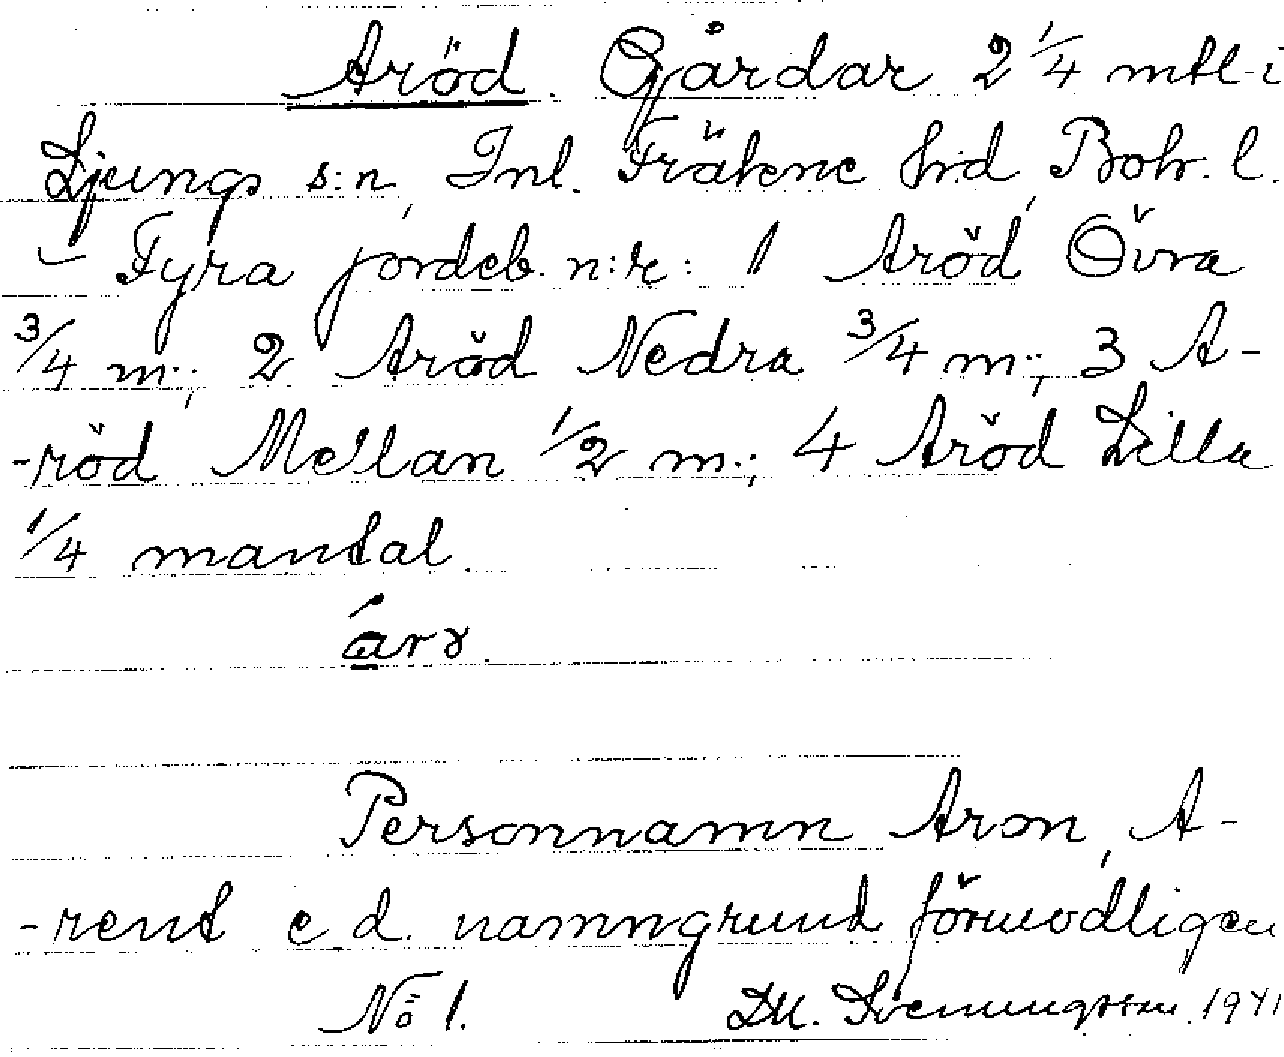 Aröd. Gårdar 2 1/4 mtl i
Ljungs s:n, Inl. Fräkne h:d, Boh. l.
– Fyra jordeb. n:r: 1 Aröd Övra
3/4 m.; 2 Aröd Nedra 3/4 m.; 3 A-
-röd Mellan 1/2 m.; 4 Aröd Lilla
1/4 mantal.
Personnamn Aron, A-
-rent e d. namngrund förmodligen
No 1. Svenungsson 1941